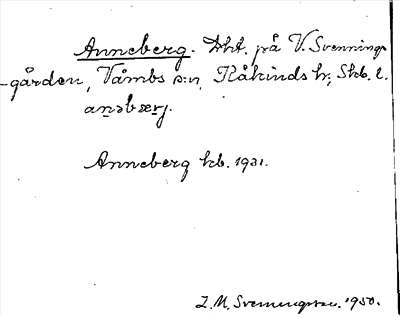 Anneberg. Lht. på V. Svennings
-gården, Våmbs s:n, Kåkinds hr; Skb. l.
anəbærj.
Anneberg kb. 1931.
Z. M. Svenungsson. 1950.